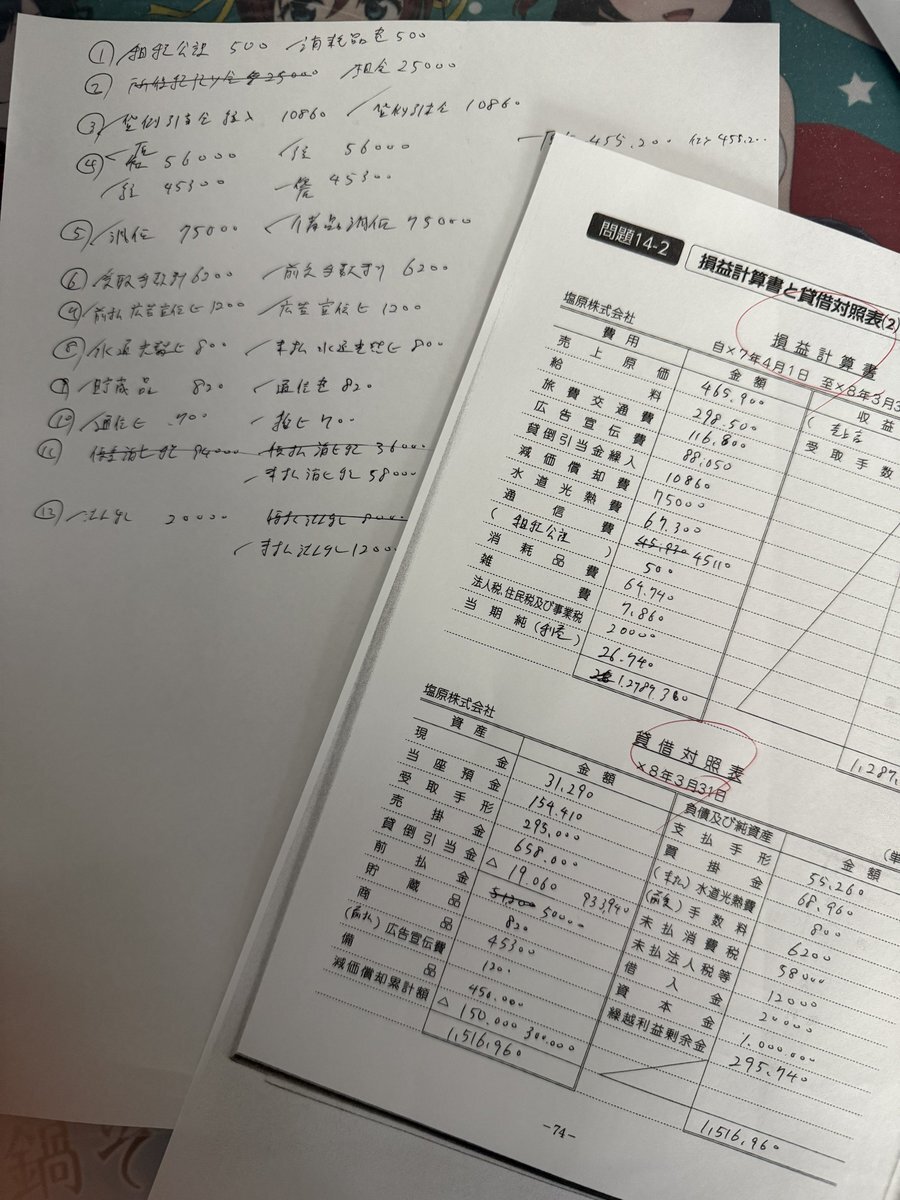 ① 租税公課 500 消耗品費 500
② 25000 現金 25000
③ 貸倒引当金繰入 10860 貸倒引当金 10860
④ 仕 56000
仕 45300 45300
455.200 455.200
⑤ 減価 75000 備品減価 75000
⑥ 受取手数料 6200 前受手数料 6200
前払広告宣伝ヒ 1200 広告宣伝ヒ 1200
⑧ 水道光熱ヒ 800 未払水道光熱ヒ 800
⑨ 貯蔵品 820 通信費 820
⑩ 通信ヒ 700 700
⑪ 94000 36000
58000
20000
12000
問題14-2
損益計算書と貸借対照表(2)
損益計算書
塩原株式会社
自×7年4月1日 至×8年3月3
費用 金額 収益
売上原価 465.900
給料 298.500 受取手数
旅費交通費 116.800
広告宣伝費 88.050
貸倒引当金繰入 10860
減価償却費 75000
水道光熱費 67.300
通信費 45110
(租税公課) 500
消耗品費 64.740
雑費 7.860
法人税、住民税及び事業税 20000
当期純(利益) 26.740
1,287,
貸借対照表
塩原株式会社
×8年3月31日
資産 金額 負債及び純資産 金額
現金 31,290 支払手形 55.260
当座預金 154.410 買掛金 68.960
受取手形 293,000 (未払)水道光熱費 800
売掛金 658.000 (前受)手数料 6200
貸倒引当金 △ 19.060 933,940 未払消費税 58000
前払金 50000 未払法人税等 12000
貯蔵品 820 借入金 20000
商品 45300 資本金 1.000.000
(前払)広告宣伝費 1200 繰越利益剰余金 295.740
備品 450.000
減価償却累計額 △ 150.000 300.000
1,516,960 1,516,960
-74-
鍋そ